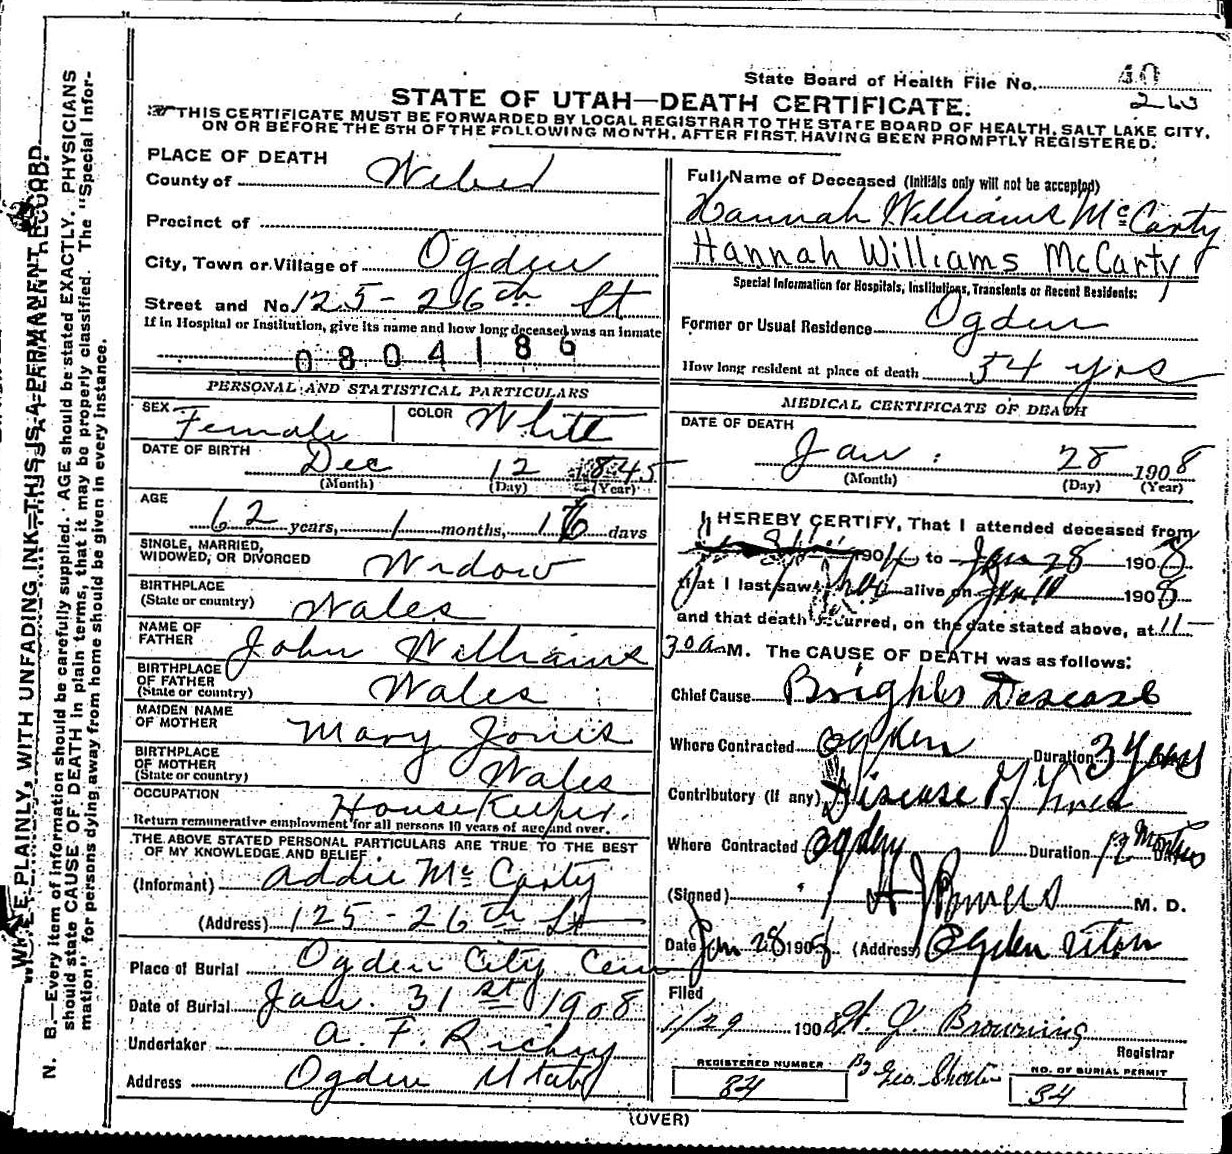 State Board of Health File No. 40
STATE OF UTAH—DEATH CERTIFICATE.
THIS CERTIFICATE MUST BE FORWARDED BY LOCAL REGISTRAR TO THE STATE BOARD OF HEALTH, SALT LAKE CITY,
ON OR BEFORE THE 5TH OF THE FOLLOWING MONTH, AFTER FIRST HAVING BEEN PROMPTLY REGISTERED.
PLACE OF DEATH
County of Weber
Precinct of
City, Town or Village of Ogden
Street and No. 125 - 26th St
If in Hospital or Institution, give its name and how long deceased was an inmate
0804186
PERSONAL AND STATISTICAL PARTICULARS
SEX Female COLOR White
DATE OF BIRTH
Dec 12 1845
(Month) (Day) (Year)
AGE
62 years, 1 months, 16 days
SINGLE, MARRIED,
WIDOWED, OR DIVORCED Widow
BIRTHPLACE
(State or country) Wales
NAME OF
FATHER John Williams
BIRTHPLACE
OF FATHER
(State or country) Wales
MAIDEN NAME
OF MOTHER Mary Jones
BIRTHPLACE
OF MOTHER
(State or country) Wales
OCCUPATION House Keeper.
Return remunerative employment for all persons 10 years of age and over.
THE ABOVE STATED PERSONAL PARTICULARS ARE TRUE TO THE BEST
OF MY KNOWLEDGE AND BELIEF
(Informant) Addie McCarty
(Address) 125 - 26th St
Place of Burial Ogden City Cem
Date of Burial Jan. 31st 1908
Undertaker A. F. Richey
Address Ogden Utah
Full Name of Deceased (Initials only will not be accepted)
Hannah Williams McCarty
Hannah Williams McCarty
Special Information for Hospitals, Institutions, Transients or Recent Residents:
Former or Usual Residence Ogden
How long resident at place of death 34 yrs
MEDICAL CERTIFICATE OF DEATH
DATE OF DEATH
Jan. 28 1908
(Month) (Day) (Year)
I HEREBY CERTIFY, That I attended deceased from
190 to Jan 28 1908
that I last saw alive on Jan 1908
and that death occurred, on the date stated above, at 11-
30 a M. The CAUSE OF DEATH was as follows:
Chief Cause Brights Desease
Where Contracted Ogden Duration 3 Years
Contributory (If any) Disease of
Where Contracted Ogden Duration 12 Months
(Signed) M. D.
Date Jan 28 1908 (Address) Ogden Utah
Filed
1/29 1908 Browning
Registrar
REGISTERED NUMBER
34
By Geo.
NO. OF BURIAL PERMIT
34
(OVER)
WRITE PLAINLY, WITH UNFADING INK—THIS IS A PERMANENT RECORD.
N. B.—Every item of information should be carefully supplied. AGE should be stated EXACTLY. PHYSICIANS
should state CAUSE OF DEATH in plain terms, that it may be properly classified. The "Special Infor-
mation" for persons dying away from home should be given in every instance.